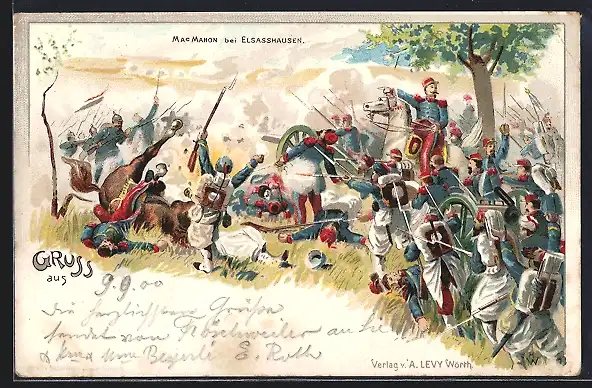 MacMahon bei Elsasshausen.
Gruss
aus
9.9.00
Die herzlichsten Grüße
sendet von Fröschweiler an Sie
E. Roth
Verlag v. A. LEVY Wörth.